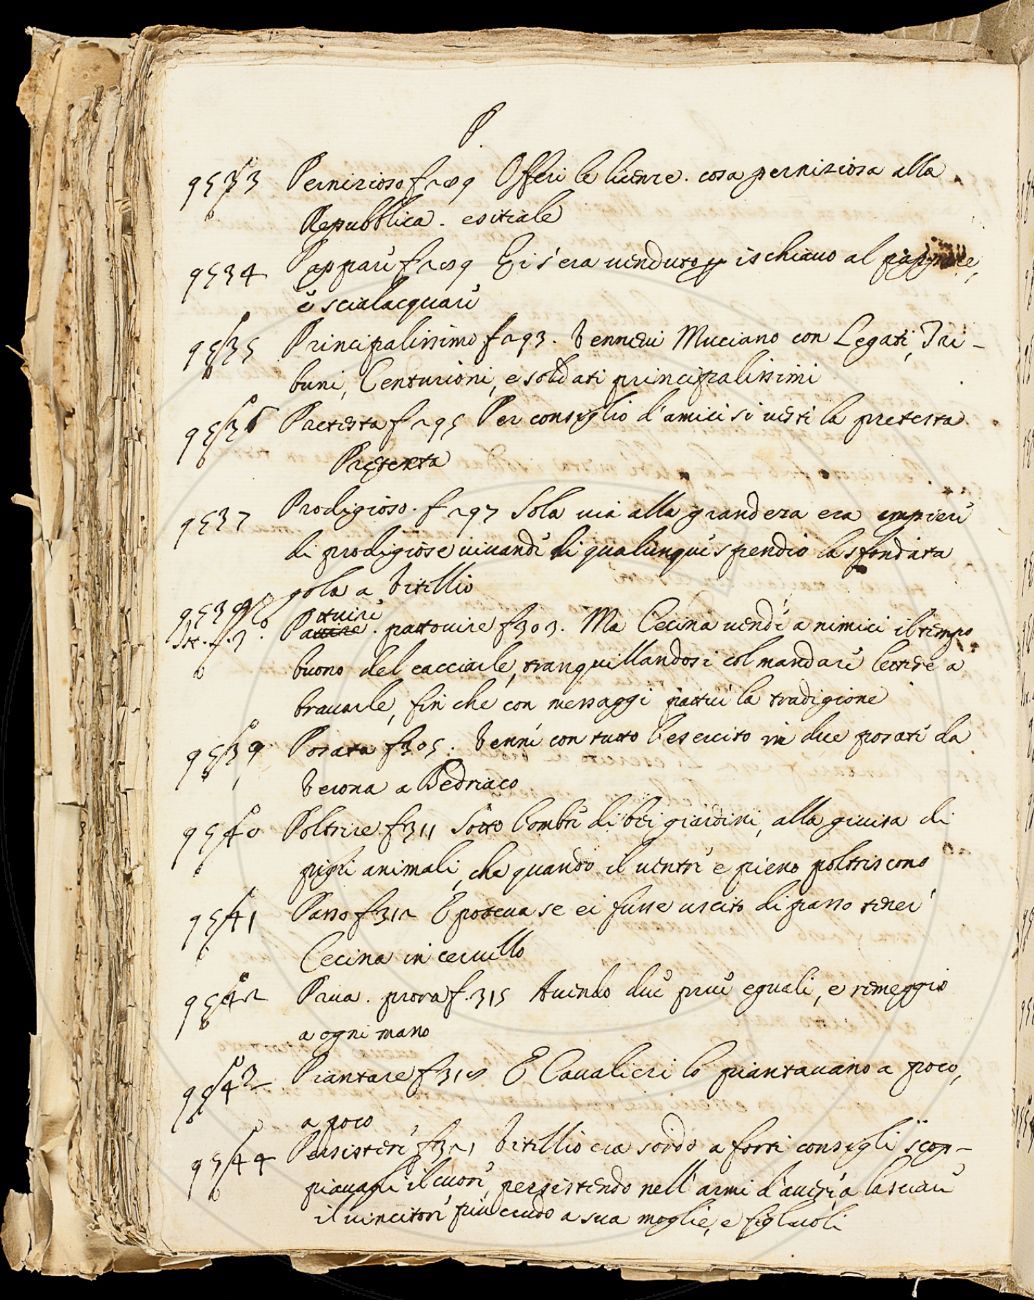 P.
9533 Pernizioso f 289 Offeri le licenze. cosa perniziosa alla
Repubblica. esitiale
9534 Pappare f 289 Ei s'era venduto p ischiavo al
e scialacquare
9535 Principalissimo f 293. Vennevi Muciano con Legati, Tri-
buni, Centurioni, e soldati principalissimi
9536 Pretesta f 295 Per consiglio d'amici si vesti la pretesta
Pretesta
9537 Prodigioso. f 297 Sola via alla grandeza era empiere
di prodigiose vivande di qualunque spendio la sfondata
gola a Vitellio
9538 Pattuire
Pattuire. pattovire f 303. Ma Cecina vendé a nimici il tempo
buono del cacciarle, tranquillandosi col mandare lettere a
bravarle, fin che con messaggi pattui la tradigione
9539 Posata f 305. Venne con tutto l'esercito in due posate da
Verona a Bedriaco
9540 Poltrire f 311 Sotto l'ombre di bei giardini, alla guisa di
pigri animali, che quando il ventre e pieno poltriscono
9541 Passo f 312 E poteva se ei fusse uscito di passo tener
Cecina in cervello
9542 Prua. prora f. 315 Avendo due prue eguali, e remeggio
a ogni mano
9543 Piantare f 318 E Cavalieri lo piantavano a poco,
a poco
9544 Persistere f 321 Vitellio era sordo a forti consigli scop-
piavagli il cuore persistendo nell'armi d'avere a lasciare
il vincitore più crudo a sua moglie, e figliuoli